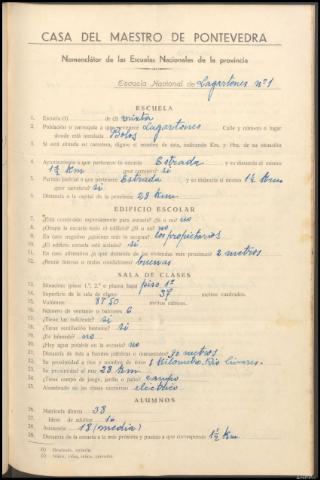 CASA DEL MAESTRO DE PONTEVEDRA
Nomenclátor de las Escuelas Nacionales de la provincia
Escuela Nacional de Lagartones nº 1
ESCUELA
1. Escuela (1) de (2) mixta
2. Población o parroquia a que pertenece Lagartones Calle y número o lugar
donde está instalada Bolos
3. Si está situada en carretera, dígase el nombre de ésta, indicando Km. y Hm. de su situación
4. Ayuntamiento a que pertenece la escuela Estrada y su distancia al mismo
1½ Km ¿por carretera? si
5. Partido judicial a que pertenece Estrada y su distancia al mismo 1½ Km
¿por carretera? si
6. Distancia a la capital de la provincia 28 Km
EDIFICIO ESCOLAR
7. ¿Está construído expresamente para escuela? ¿Sí o no? no
8. ¿Ocupa la escuela todo el edificio? ¿Sí o no? no
9. En caso negativo ¿quiénes más lo ocupan? los propietarios
10. ¿El edificio escuela está aislado? si
11. En caso afirmativo ¿a qué distancia de las viviendas más próximas? 2 metros
12. ¿Reúne buenas o malas condiciones? buenas
SALA DE CLASES
13. Situación: (pisos 1.º, 2.º o planta baja) piso 1º
14. Superficie de la sala de clases metros cuadrados.
15. Volumen: metros cúbicos.
16. Número de ventanas o balcones 6
17. ¿Tiene luz suficiente? si
18. ¿Tiene ventilación bastante? si
19. ¿Es húmeda? no
20. ¿Hay agua potable en la escuela? no
21. Distancia de ésta a fuentes públicas o manantiales 90 metros
22. Su proximidad a ríos y nombre de éstos 1 Kilometro. Río Linares.
23. Su proximidad al mar 28 Km
24. ¿Tiene campo de juego, jardín o patio? campo
25. Alumbrado en las clases nocturnas eléctrico
ALUMNOS
26. Matrícula diaria 38
27. Idem de adultos 16
28. Asistencia 18 (media)
29. Distancia de la escuela a la más próxima y pueblo a que corresponde 1½ Km.
(1) Graduada, unitaria
(2) Niños, niñas, mixta, párvulos